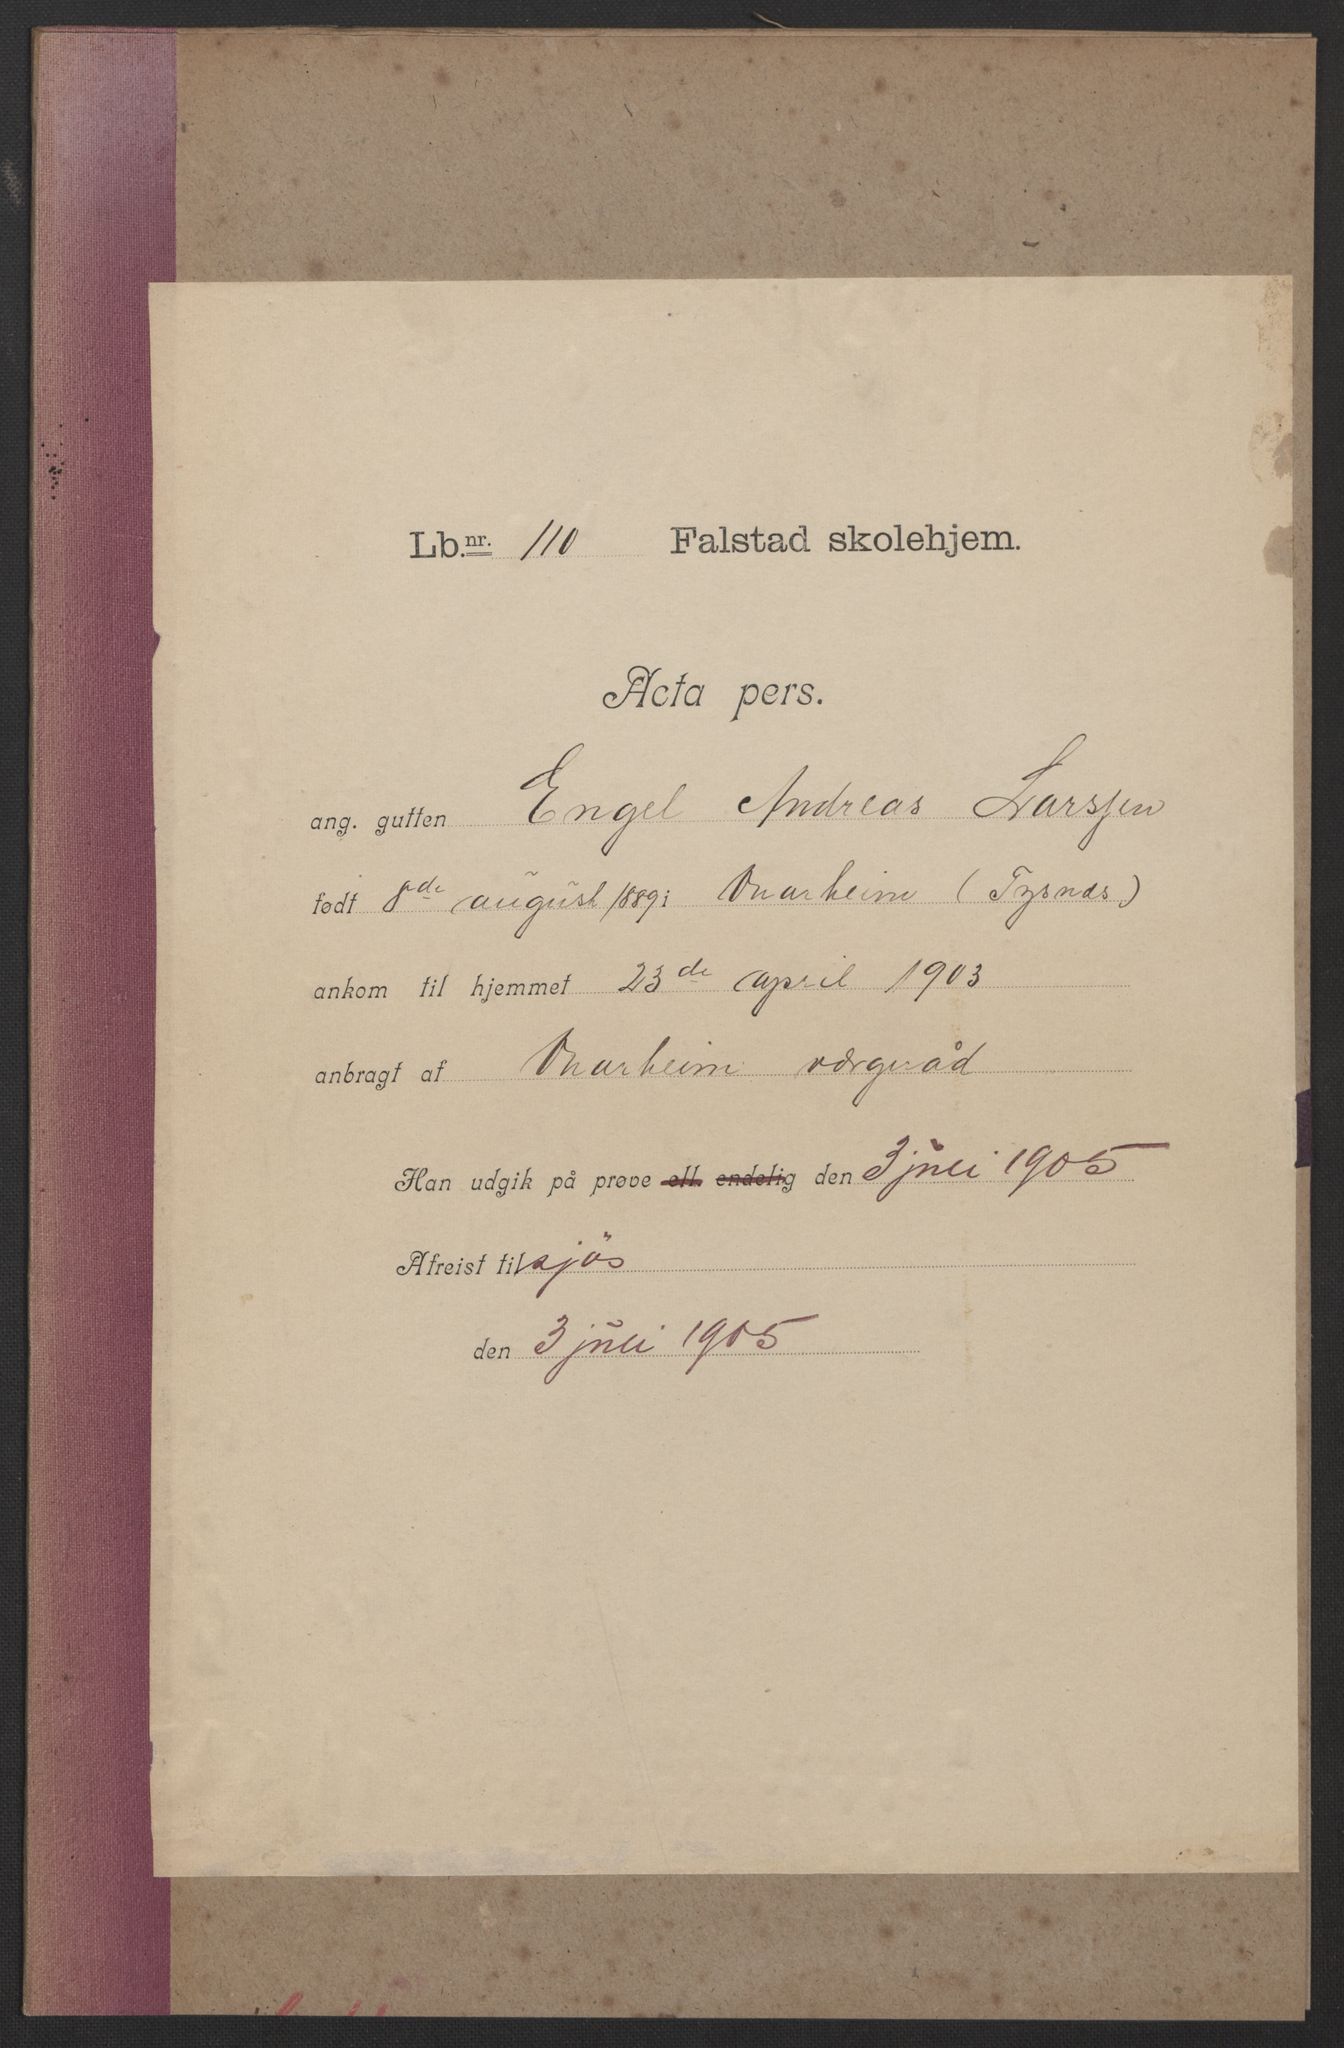 Lb.nr. 110 Falstad skolehjem.
Acta pers.
ang. gutten Engel Andreas Larssen
født 8de august 1889 i Onarheim (Tysnæs)
ankom til hjemmet 23de april 1903
anbragt af Onarheim værgeråd
Han udgik på prøve ell. endelig den 3 juli 1905
Afreist til sjös
den 3 juli 1905